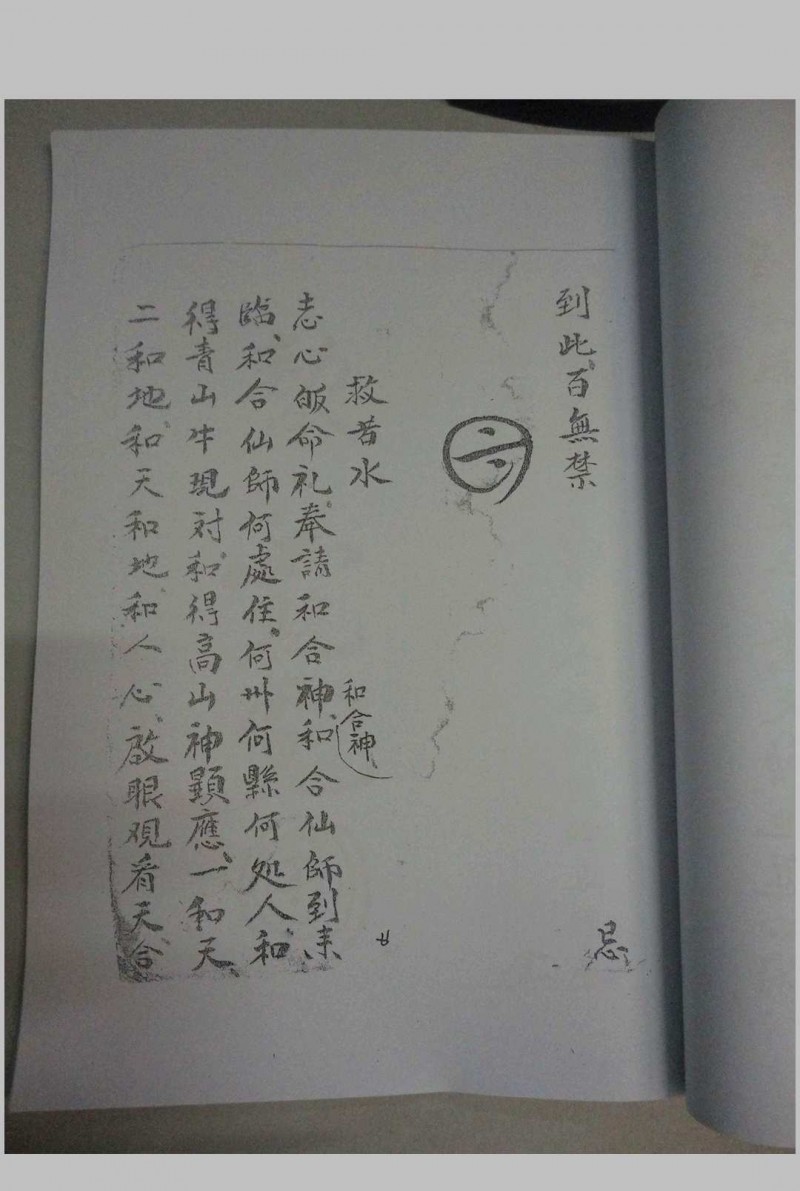 到此、百無禁
忌
救苦水
和合神
志心皈命礼、奉請和合神、和合仙師到来
臨、和合仙師何處住、何州何縣何処人、和
得青山牛現対、和得高山神顕應、一和天、
二和地、和天和地和人心、啟眼观看天合、